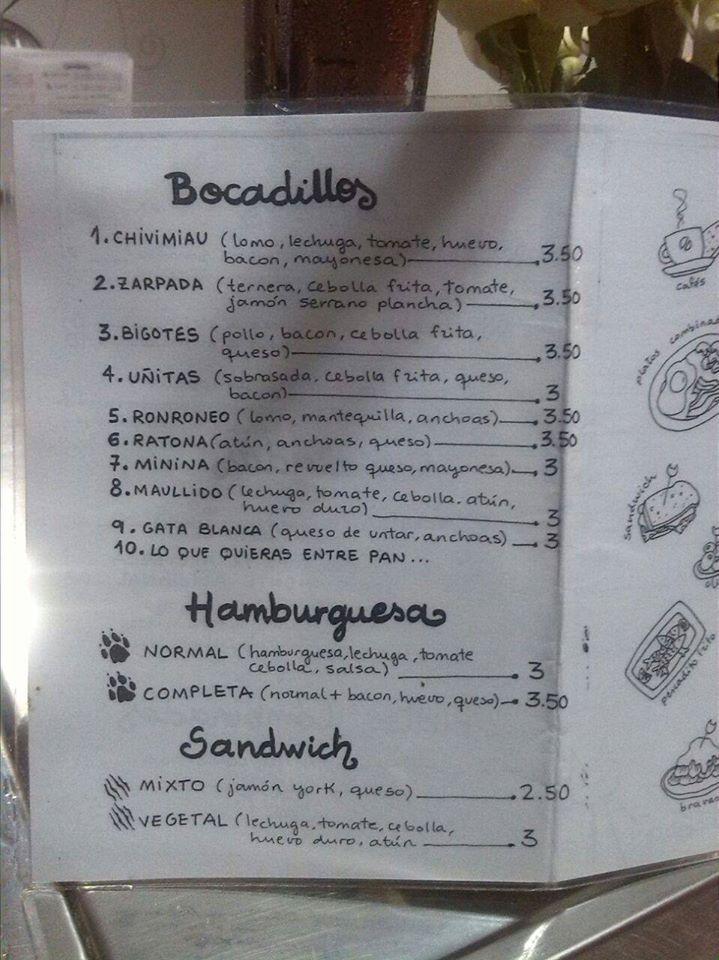 Bocadillos
1. CHIVIMIAU (lomo, lechuga, tomate, huevo,
bacon, mayonesa) 3.50
2. ZARPADA (ternera, cebolla frita, tomate,
jamón serrano plancha) 3.50
3. BIGOTES (pollo, bacon, cebolla frita,
queso) 3.50
4. UÑITAS (sobrasada, cebolla frita, queso,
bacon) 3
5. RONRONEO (lomo, mantequilla, anchoas) 3.50
6. RATONA (atún, anchoas, queso) 3.50
7. MININA (bacon, revuelto queso, mayonesa) 3
8. MAULLIDO (lechuga, tomate, cebolla. atún,
huevo duro) 3
9. GATA BLANCA (queso de untar, anchoas) 3
10. LO QUE QUIERAS ENTRE PAN...
Hamburguesa
NORMAL (hamburguesa, lechuga, tomate
cebolla, salsa) 3
COMPLETA (normal + bacon, huevo, queso) 3.50
Sandwich
MIXTO (jamón york, queso) 2.50
VEGETAL (lechuga, tomate, cebolla,
huevo duro, atún 3
cafés
platos combinad
sandwich
pescadito frito
brava